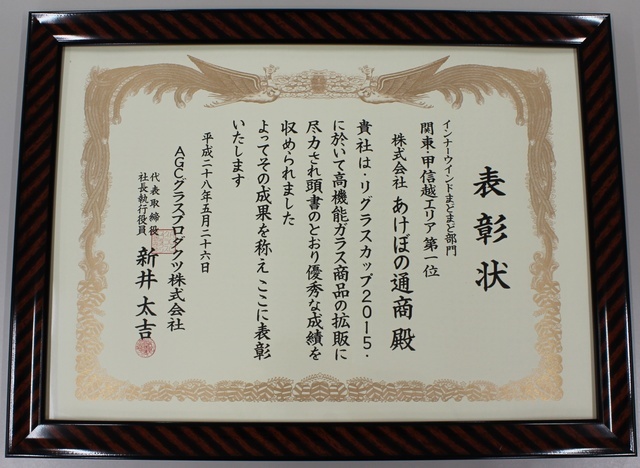 表彰状
インナーウインドまどまど部門
関東・甲信越エリア 第一位
株式会社 あけぼの通商 殿
貴社は・リグラスカップ2015・
に於いて高機能ガラス商品の拡販に
尽力され頭書のとおり優秀な成績を
収められました
よってその成果を称え ここに表彰
いたします
平成二十八年五月二十六日
AGCグラスプロダクツ株式会社
代表取締役
社長執行役員
新井 太吉